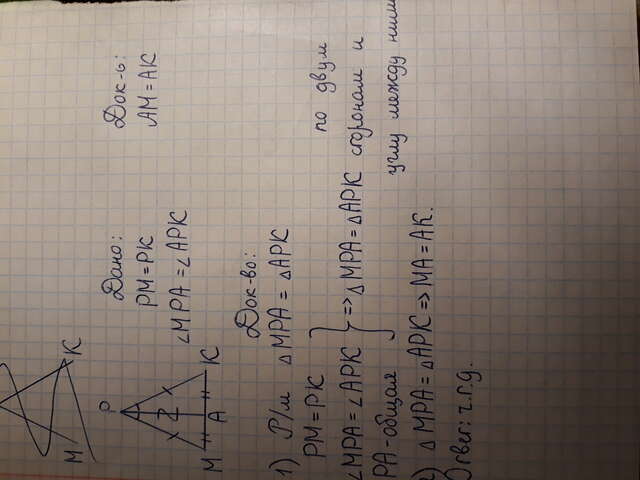 М К
P
М А К
Дано:
PM = PK
∠MPA = ∠APK
Док-ь:
AM = AK
Док-во:
1) Р/м △MPA = △APK
PM = PK
∠MPA = ∠APK
PA - общая
=> △MPA = △APK
по двум
сторонам и
углу между ними
2) △MPA = △APK => MA = AK.
Ответ: ч.т.д.